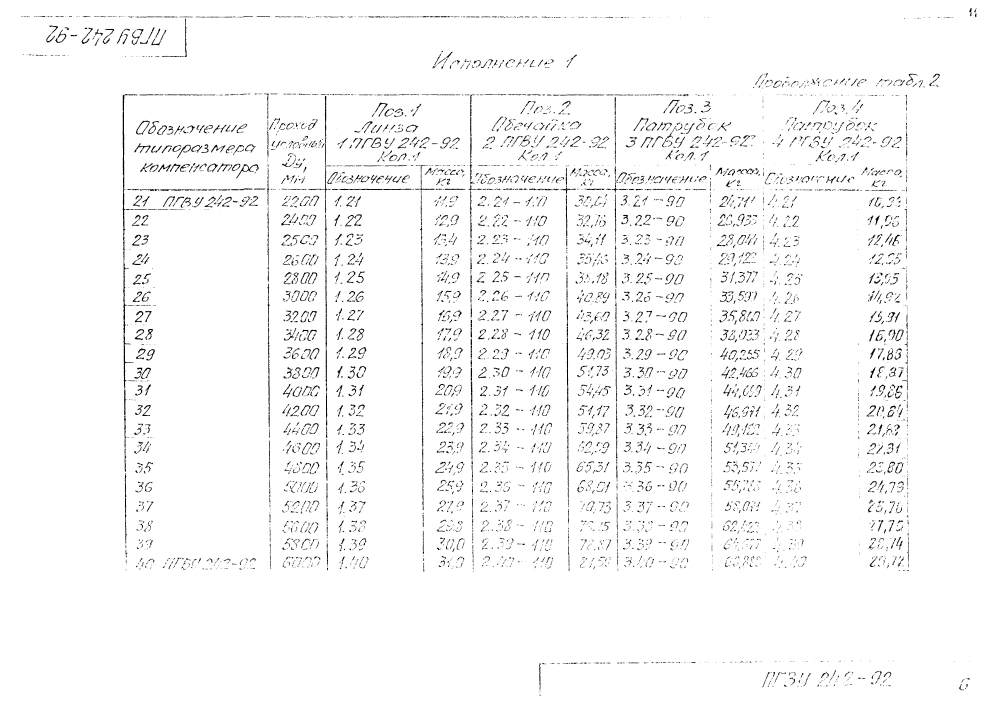 11
ПГВУ 242-92
Исполнение 1
Продолжение табл. 2
Обозначение типоразмера компенсатора
Проход условный Dу, мм
Поз. 1 Линза 1 ПГВУ 242-92 Кол. 1
Поз. 2 Обечайка 2 ПГВУ 242-92 Кол. 1
Поз. 3 Патрубок 3 ПГВУ 242-92 Кол. 1
Поз. 4 Патрубок 4 ПГВУ 242-92 Кол. 1
Обозначение Масса, кг Обозначение Масса, кг Обозначение Масса, кг Обозначение Масса, кг
21 ПГВУ 242-92 2200 1.21 11,9 2.21-110 3.21-90 4.21
22 2400 1.22 12,9 2.22-110 32,76 3.22-90 26,933 4.22
23 2500 1.23 13,4 2.23-110 34,11 3.23-90 28,044 4.23 12,46
24 2600 1.24 13,9 2.24-110 3.24-90 29,122 4.24 12,95
25 2800 1.25 14,9 2.25-110 38,18 3.25-90 31,377 4.25 13,95
26 3000 1.26 15,9 2.26-110 40,89 3.26-90 33,597 4.26 14,92
27 3200 1.27 16,9 2.27-110 43,60 3.27-90 4.27 15,91
28 3400 1.28 17,9 2.28-110 46,32 3.28-90 38,033 4.28 16,90
29 3600 1.29 18,9 2.29-110 49,03 3.29-90 40,255 4.29 17,88
30 3800 1.30 19,9 2.30-110 51,73 3.30-90 42,466 4.30 18,87
31 4000 1.31 20,9 2.31-110 54,45 3.31-90 4.31 19,86
32 4200 1.32 21,9 2.32-110 3.32-90 46,911 4.32 20,84
33 4400 1.33 22,9 2.33-110 59,87 3.33-90 4.33 21,83
34 4600 1.34 23,9 2.34-110 62,59 3.34-90 4.34
35 4800 1.35 24,9 2.35-110 65,31 3.35-90 4.35 23,80
36 5000 1.36 25,9 2.36-110 68,01 3.36-90 4.36 24,79
37 5200 1.37 27,9 2.37-110 70,73 3.37-90 4.37 25,76
38 5600 1.38 29,8 2.38-110 3.38-90 4.38 27,75
39 5800 1.39 30,0 2.39-110 3.39-90 4.39 28,74
40 ПГВУ 242-92 6000 1.40 31,0 2.40-110 3.40-90 4.40 29,72
ПГВУ 242-92
6